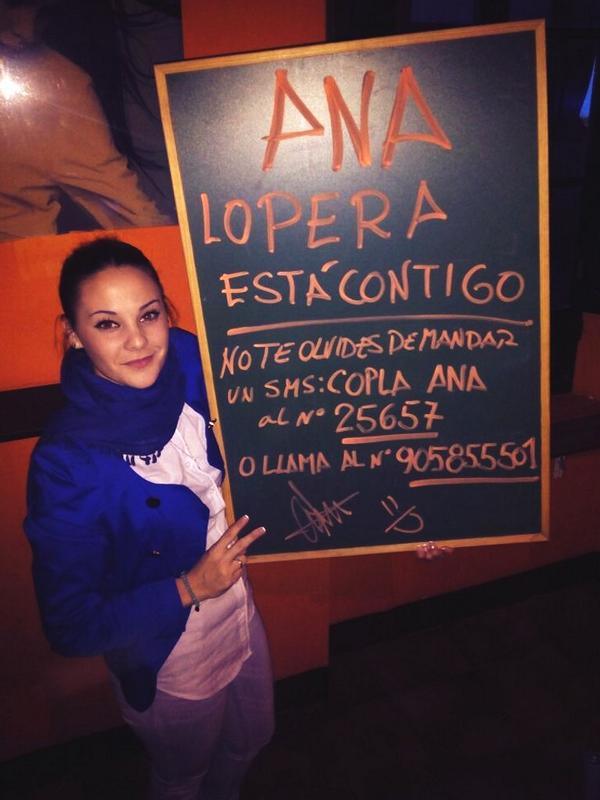 ANA
LOPERA
ESTÁ CONTIGO
NO TE OLVIDES DE MANDAR
UN SMS: COPLA ANA
al Nº 25657
O LLAMA AL Nº 905855501